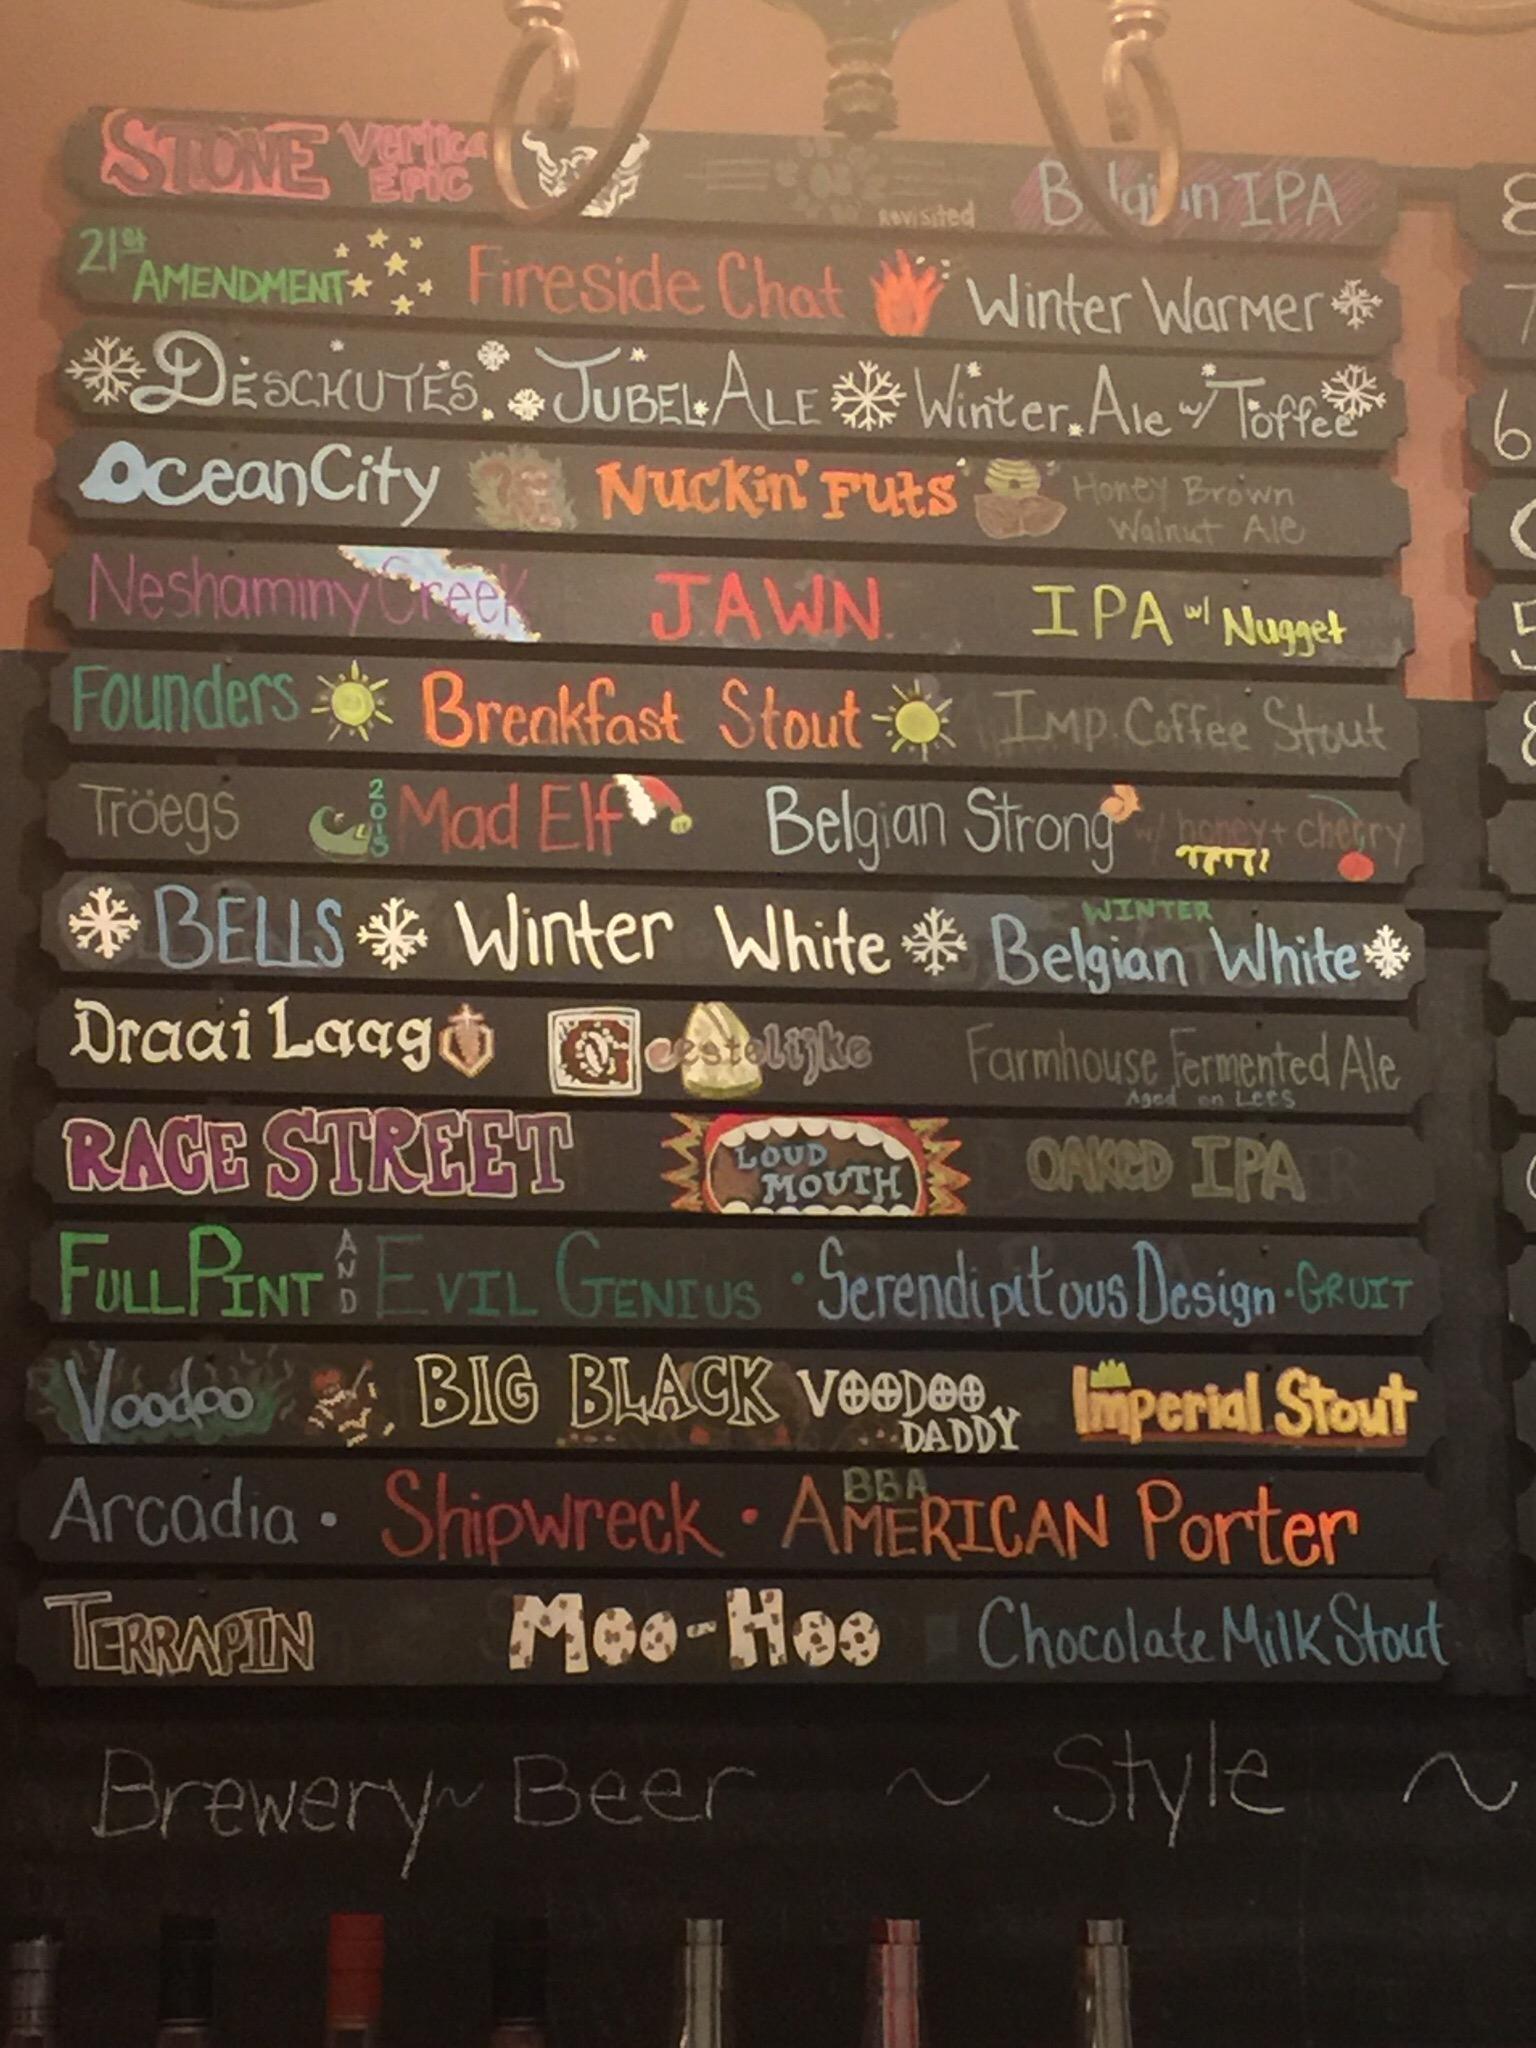 STONE Vertical EPIC Revisited Belgian IPA 8
21st AMENDMENT Fireside Chat Winter Warmer 7
DESCHUTES JUBEL ALE Winter Ale w/ Toffee 6
OceanCity Nuckin' Futs Honey Brown Walnut Ale
Neshaminy Creek JAWN IPA w/ Nugget 5
Founders Breakfast Stout Imp. Coffee Stout 8
Tröegs 2013 Mad Elf Belgian Strong w/ honey + cherry
BELLS Winter White WINTER Belgian White
Draai Laag Geestelijke Farmhouse Fermented Ale Aged on Lees
RACE STREET LOUD MOUTH OAKED IPA
FULL PINT AND EVIL GENIUS · Serendipitous Design · GRUIT
Voodoo BIG BLACK VOODOO DADDY Imperial Stout
Arcadia · Shipwreck · BBA AMERICAN Porter
TERRAPIN Moo-Hoo Chocolate Milk Stout
Brewery ~ Beer ~ Style ~